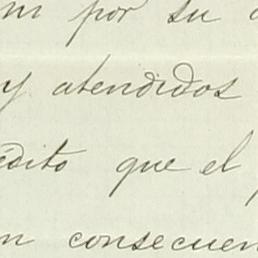 por su
y atendidos
édito que el
n consecuen